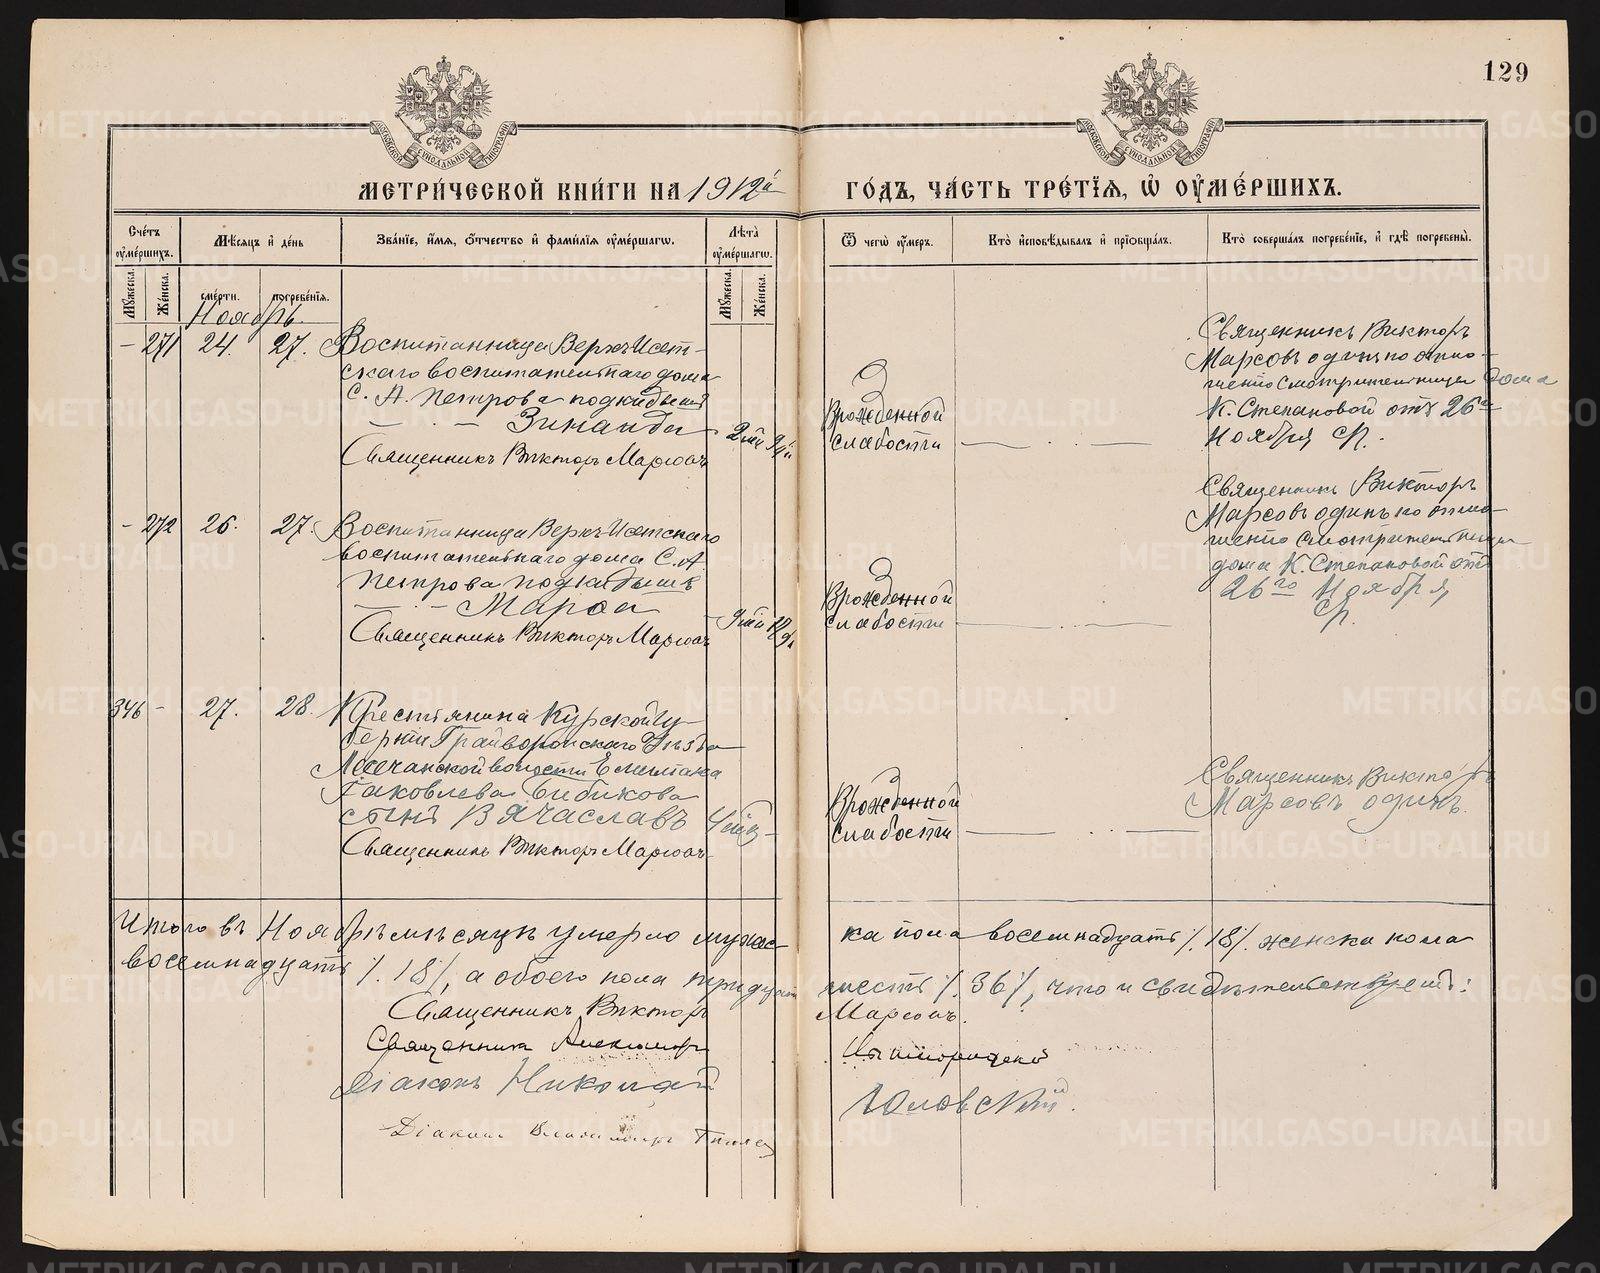 129
МЕТРИ́ЧЕСКОЙ КНИ́ГИ НА 1912й
ГО́ДЪ, ЧА́СТЬ ТРЕ́ТЇѦ, Ѡ҆ ОУ҆МЕ́РШИХЪ.
Сче́тъ оу҆ме́ршихъ.
Мѣ́сяцъ и҆ де́нь
Зва́нїе, и҆́мѧ, ѻ҆́тчество и҆ фами́лїѧ оу҆ме́ршагѡ.
Лѣ́та оу҆ме́ршагѡ.
Ѿ чегѡ̀ оу҆́меръ.
Кто̀ и҆сповѣ́дывалъ и҆ прїѻбща́лъ.
Кто̀ соверша́лъ погребе́нїе, и҆ гдѣ̀ погребены̀.
Мꙋ́жеска.
Же́нска.
сме́рти.
погребе́нїѧ.
Мꙋ́жеска.
Же́нска.
Ноябрь.
- 271 24. 27.
Воспитанница Верхъ Исет-
скаго воспитательнаго дома
С. А. Петрова подкидышъ
Зинаида
Священникъ Викторъ Марсовъ
Врожденной
слабости
Священникъ Викторъ
Марсовъ одинъ по отно-
шенію смотрительницы дома
К. Степановой отъ 26го
Ноября ст.
- 272 26. 27.
Воспитанница Верхъ-Исетскаго
воспитательнаго дома С. А.
Петрова подкидышъ
Священникъ Викторъ Марсовъ
Врожденной
слабости
Священникъ Викторъ
Марсовъ одинъ по отно-
шенію смотрительницы
дома К. Степановой отъ
26го Ноября
346 - 27. 28.
Крестьянина Курской Гу-
берніи Грайворонскаго Уѣзда
волости Емиліана
Іаковлева Бибикова
сынъ Вячеславъ
Священникъ Викторъ Марсовъ
Врожденной
слабости
Священникъ Викторъ
Марсовъ одинъ.
Итого въ Ноябрѣ мѣсяцѣ умерло мужес-
ка пола восемнадцать /. 18/. женска пола
восемнадцать /. 18/, а обоего пола тридцать
шесть /. 36/, что и свидѣтельствуетъ:
Священникъ Викторъ Марсовъ.
Священникъ Александръ
Діаконъ Николай
Діаконъ Владиміръ